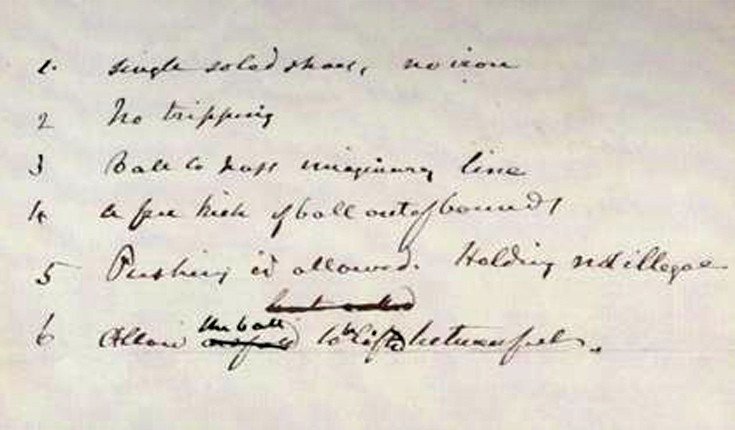 1. single soled shoes, no iron
2 No tripping
3 Ball to pass imaginary line
4 A free kick if ball out of bounds
5 Pushing is allowed. Holding not illegal
6 Allow the ball to be lifted between feet.